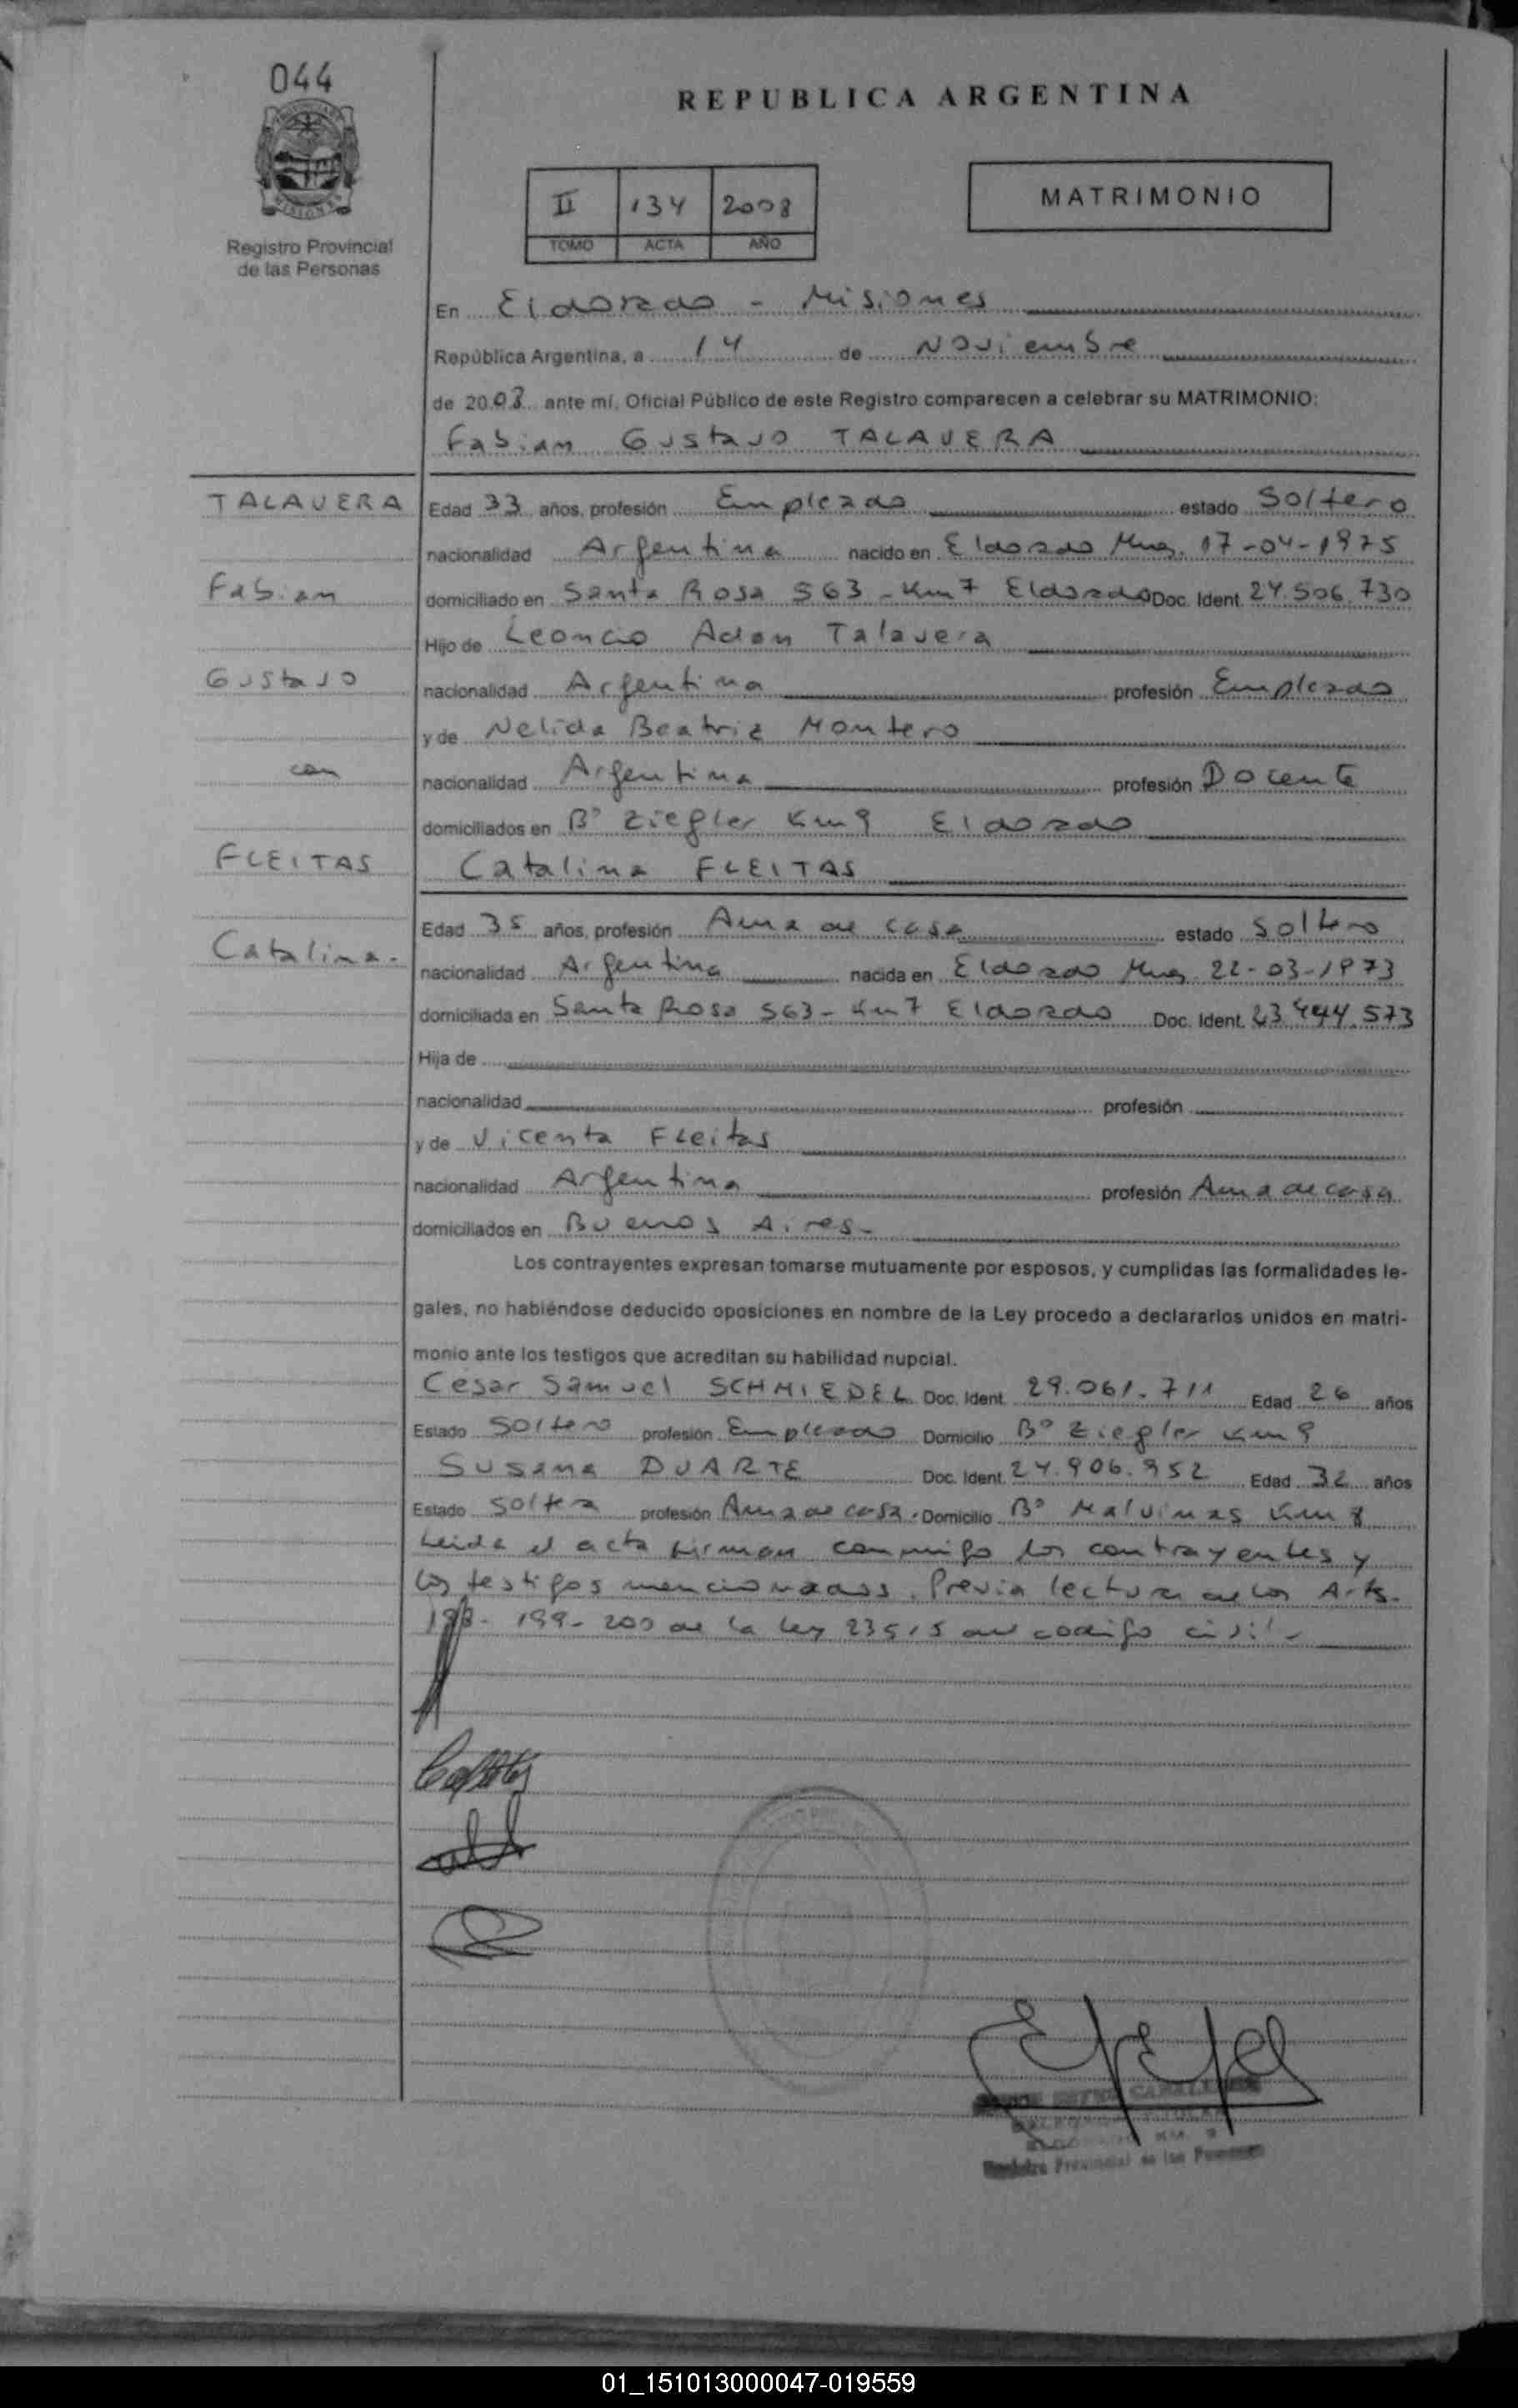 044
REPUBLICA ARGENTINA
MISIONES
II 134 2008
TOMO ACTA AÑO
MATRIMONIO
Registro Provincial
de las Personas
En Eldorado - Misiones
República Argentina, a 14 de Noviembre
de 2008 ante mí, Oficial Público de este Registro comparecen a celebrar su MATRIMONIO:
Fabian Gustavo TALAVERA
TALAVERA
Edad 33 años, profesión Empleado estado Soltero
nacionalidad Argentina nacido en Eldorado Mnes. 17-04-1975
Fabian
domiciliado en Santa Rosa 563 - Km 7 Eldorado Doc. Ident. 24.506.730
Hijo de Leoncio Adan Talavera
Gustavo
nacionalidad Argentina profesión Empleado
y de Nelida Beatriz Montero
con
nacionalidad Argentina profesión Docente
domiciliados en B° Ziegler Km 9 Eldorado
FLEITAS
Catalina FLEITAS
Edad 35 años, profesión Ama de casa estado Soltero
Catalina.-
nacionalidad Argentina nacida en Eldorado Mnes. 22-03-1973
domiciliada en Santa Rosa 563 - Km 7 Eldorado Doc. Ident. 23.444.573
Hija de
nacionalidad profesión
y de Vicenta Fleitas
nacionalidad Argentina profesión Ama de casa
domiciliados en Buenos Aires-
Los contrayentes expresan tomarse mutuamente por esposos, y cumplidas las formalidades le-
gales, no habiéndose deducido oposiciones en nombre de la Ley procedo a declararlos unidos en matri-
monio ante los testigos que acreditan su habilidad nupcial.
Cesar Samuel SCHMIEDEL Doc. Ident. 29.061.711 Edad 26 años
Estado Soltero profesión Empleado Domicilio B° Ziegler Km 9
Susana DUARTE Doc. Ident. 24.906.952 Edad 32 años
Estado Soltera profesión Ama de casa. Domicilio B° Malvinas Km 8
Leida el acta firman conmigo los contrayentes y
los testigos mencionados. Previa lectura de los Arts.
198- 199- 200 de la Ley 23515 del codigo civil-
CABALLERO
Registro Provincial de las Personas
01_151013000047-019559